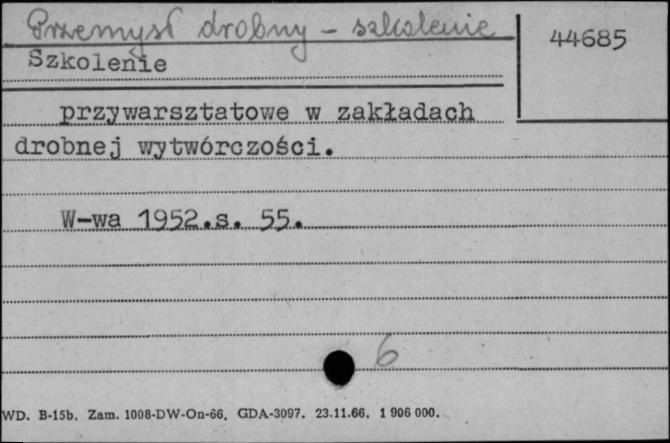 Przemysł drobny - szkolenie
44685
Szkolenie
przywarsztatowe w zakładach
drobnej wytwórczości.
W-wa 1952.s. 55.
6
WD. B-15b. Zam. 1008-DW-On-66. GDA-3097. 23.11.66. 1 906 000.